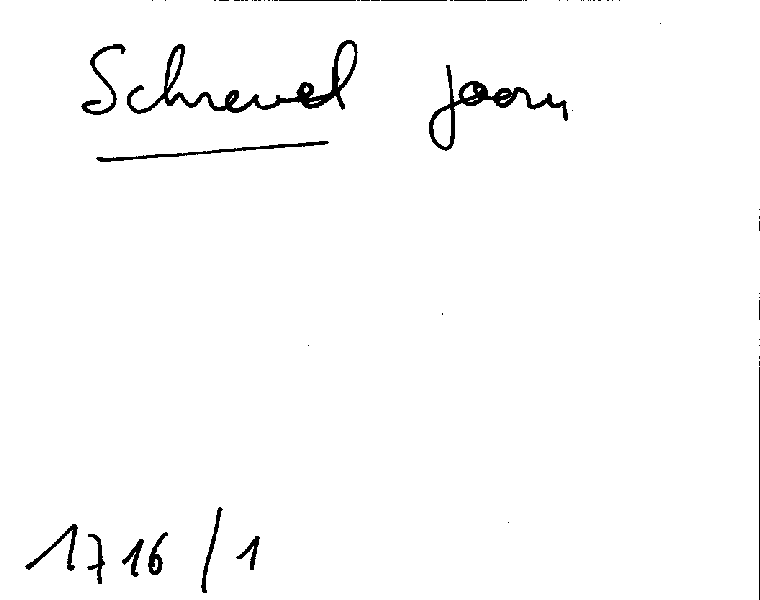 Schrevel Joory
1716/1